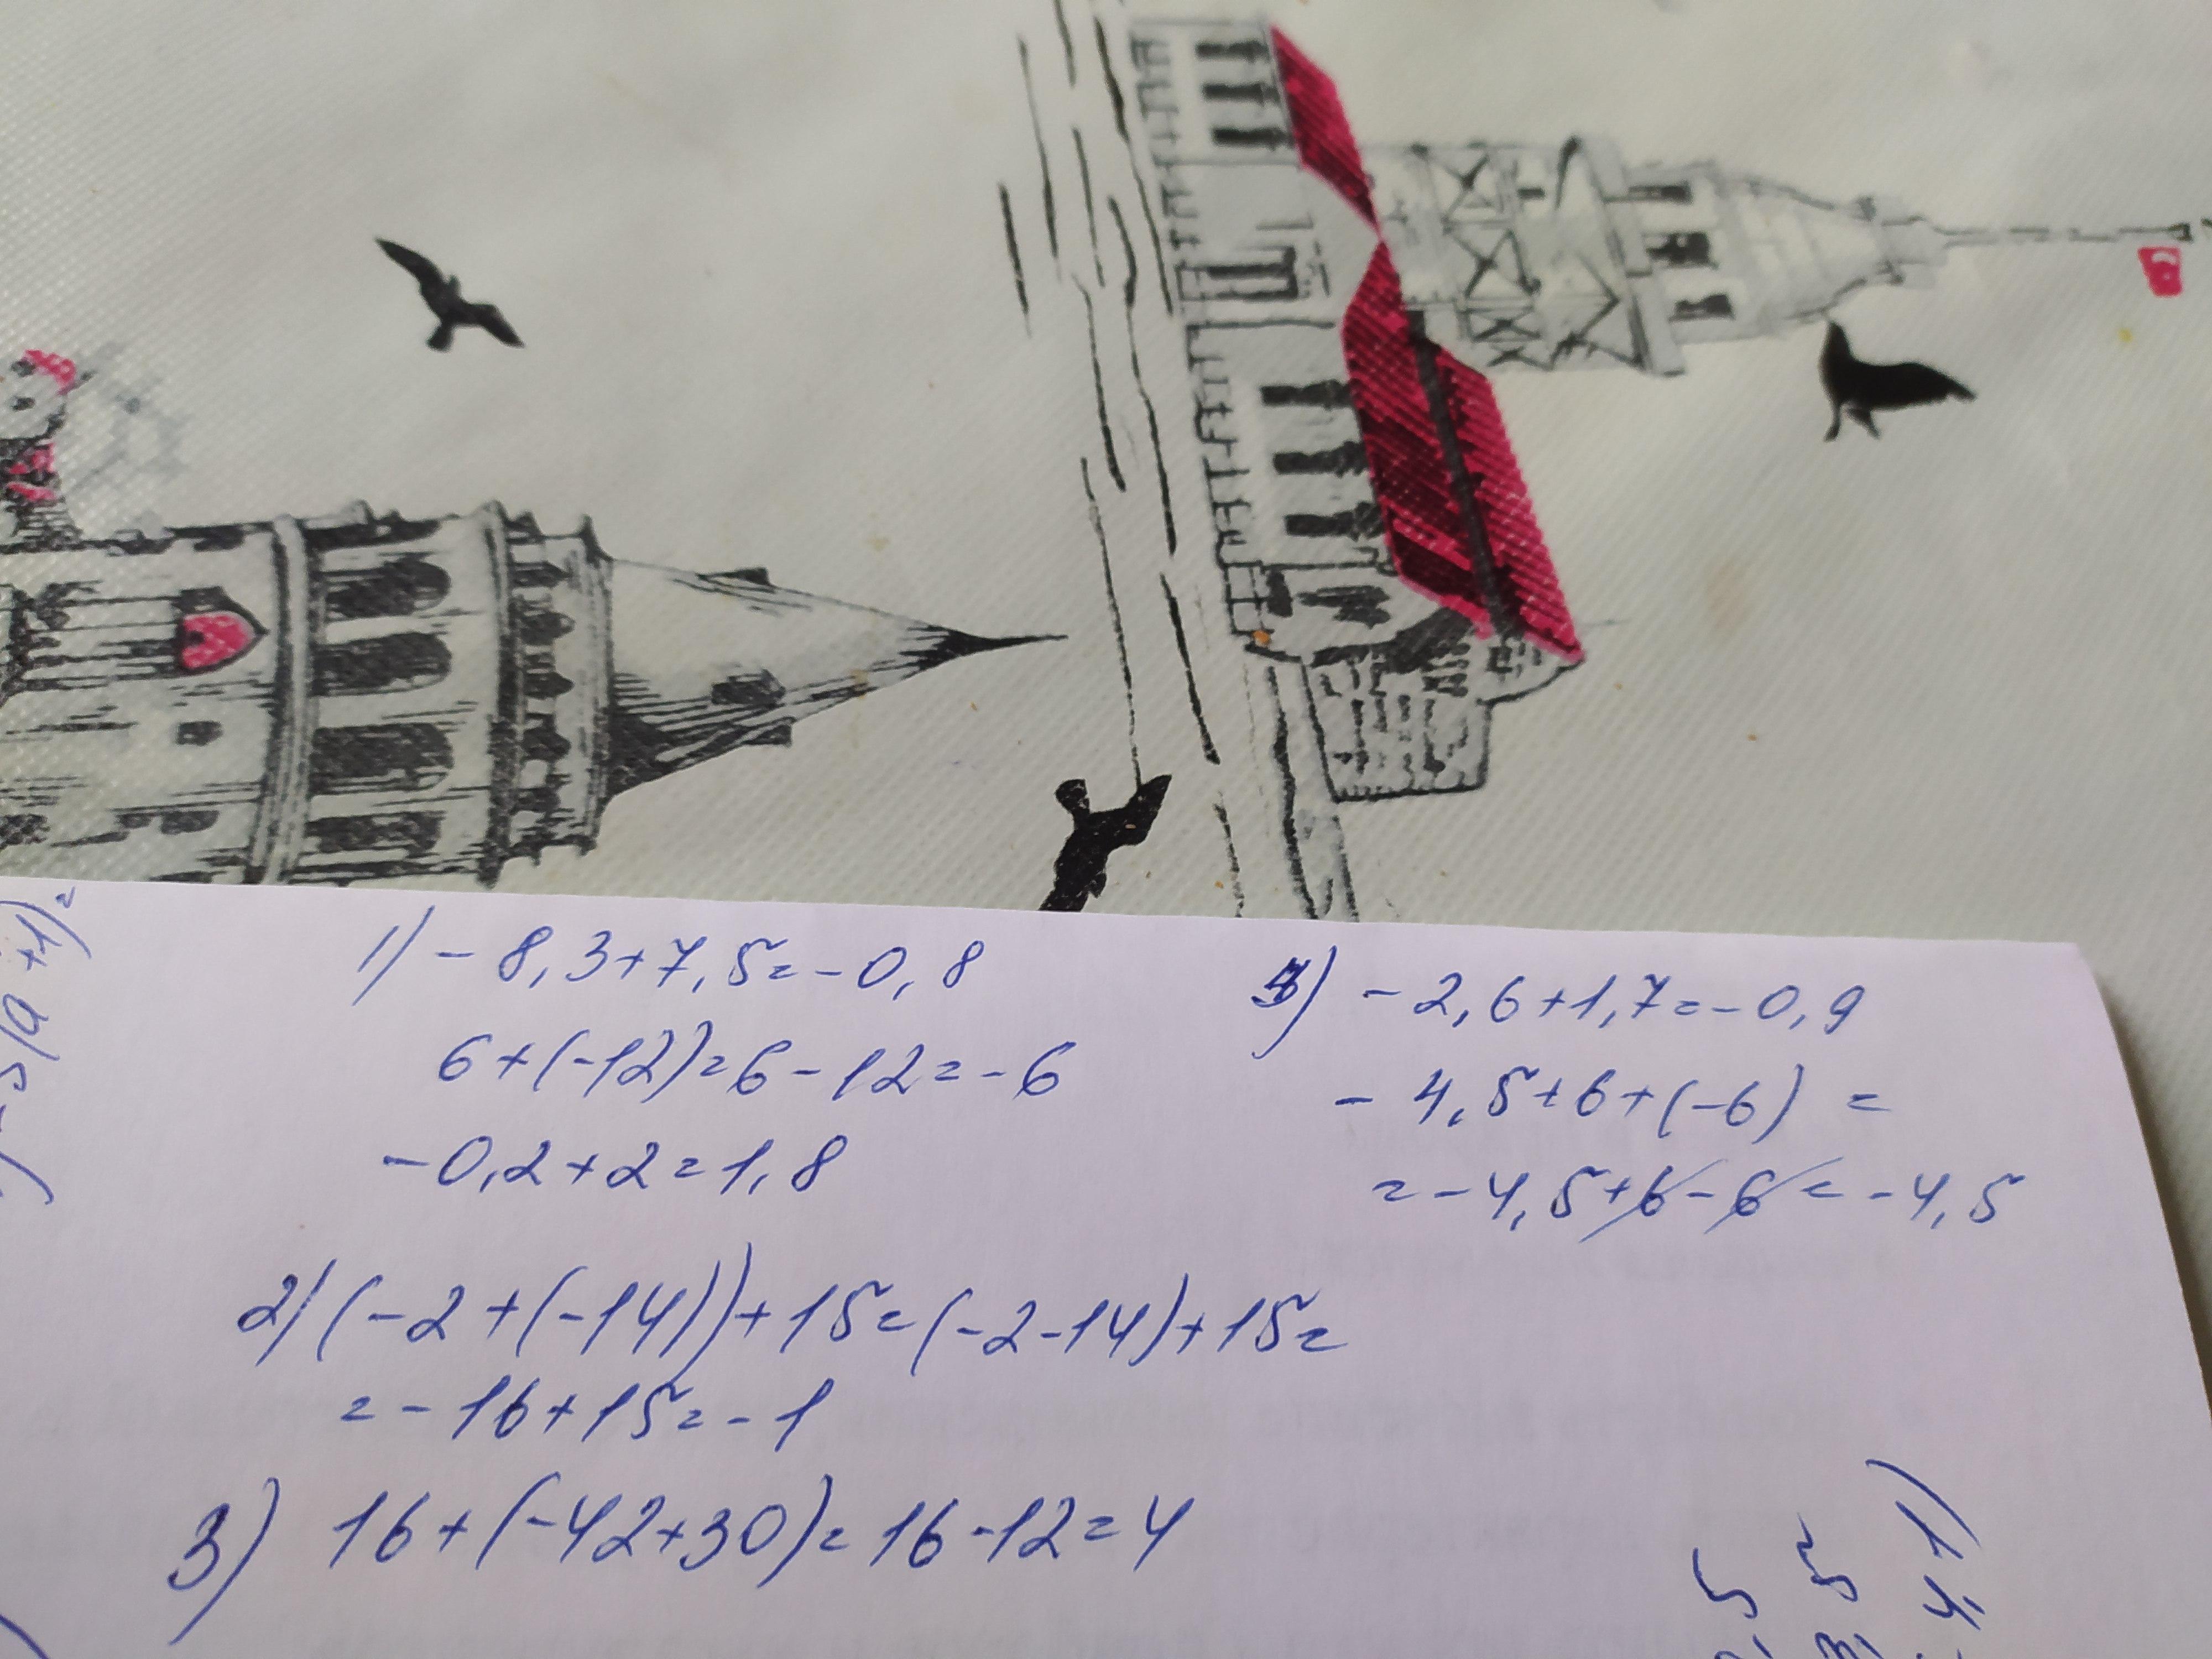 1) -8,3+7,5=-0,8
6+(-12)=6-12=-6
-0,2+2=1,8
2) (-2+(-14))+15=(-2-14)+15=
=-16+15=-1
3) 16+(-42+30)=16-12=4
4) -2,6+1,7=-0,9
-4,5+6+(-6) =
=-4,5+6-6=-4,5